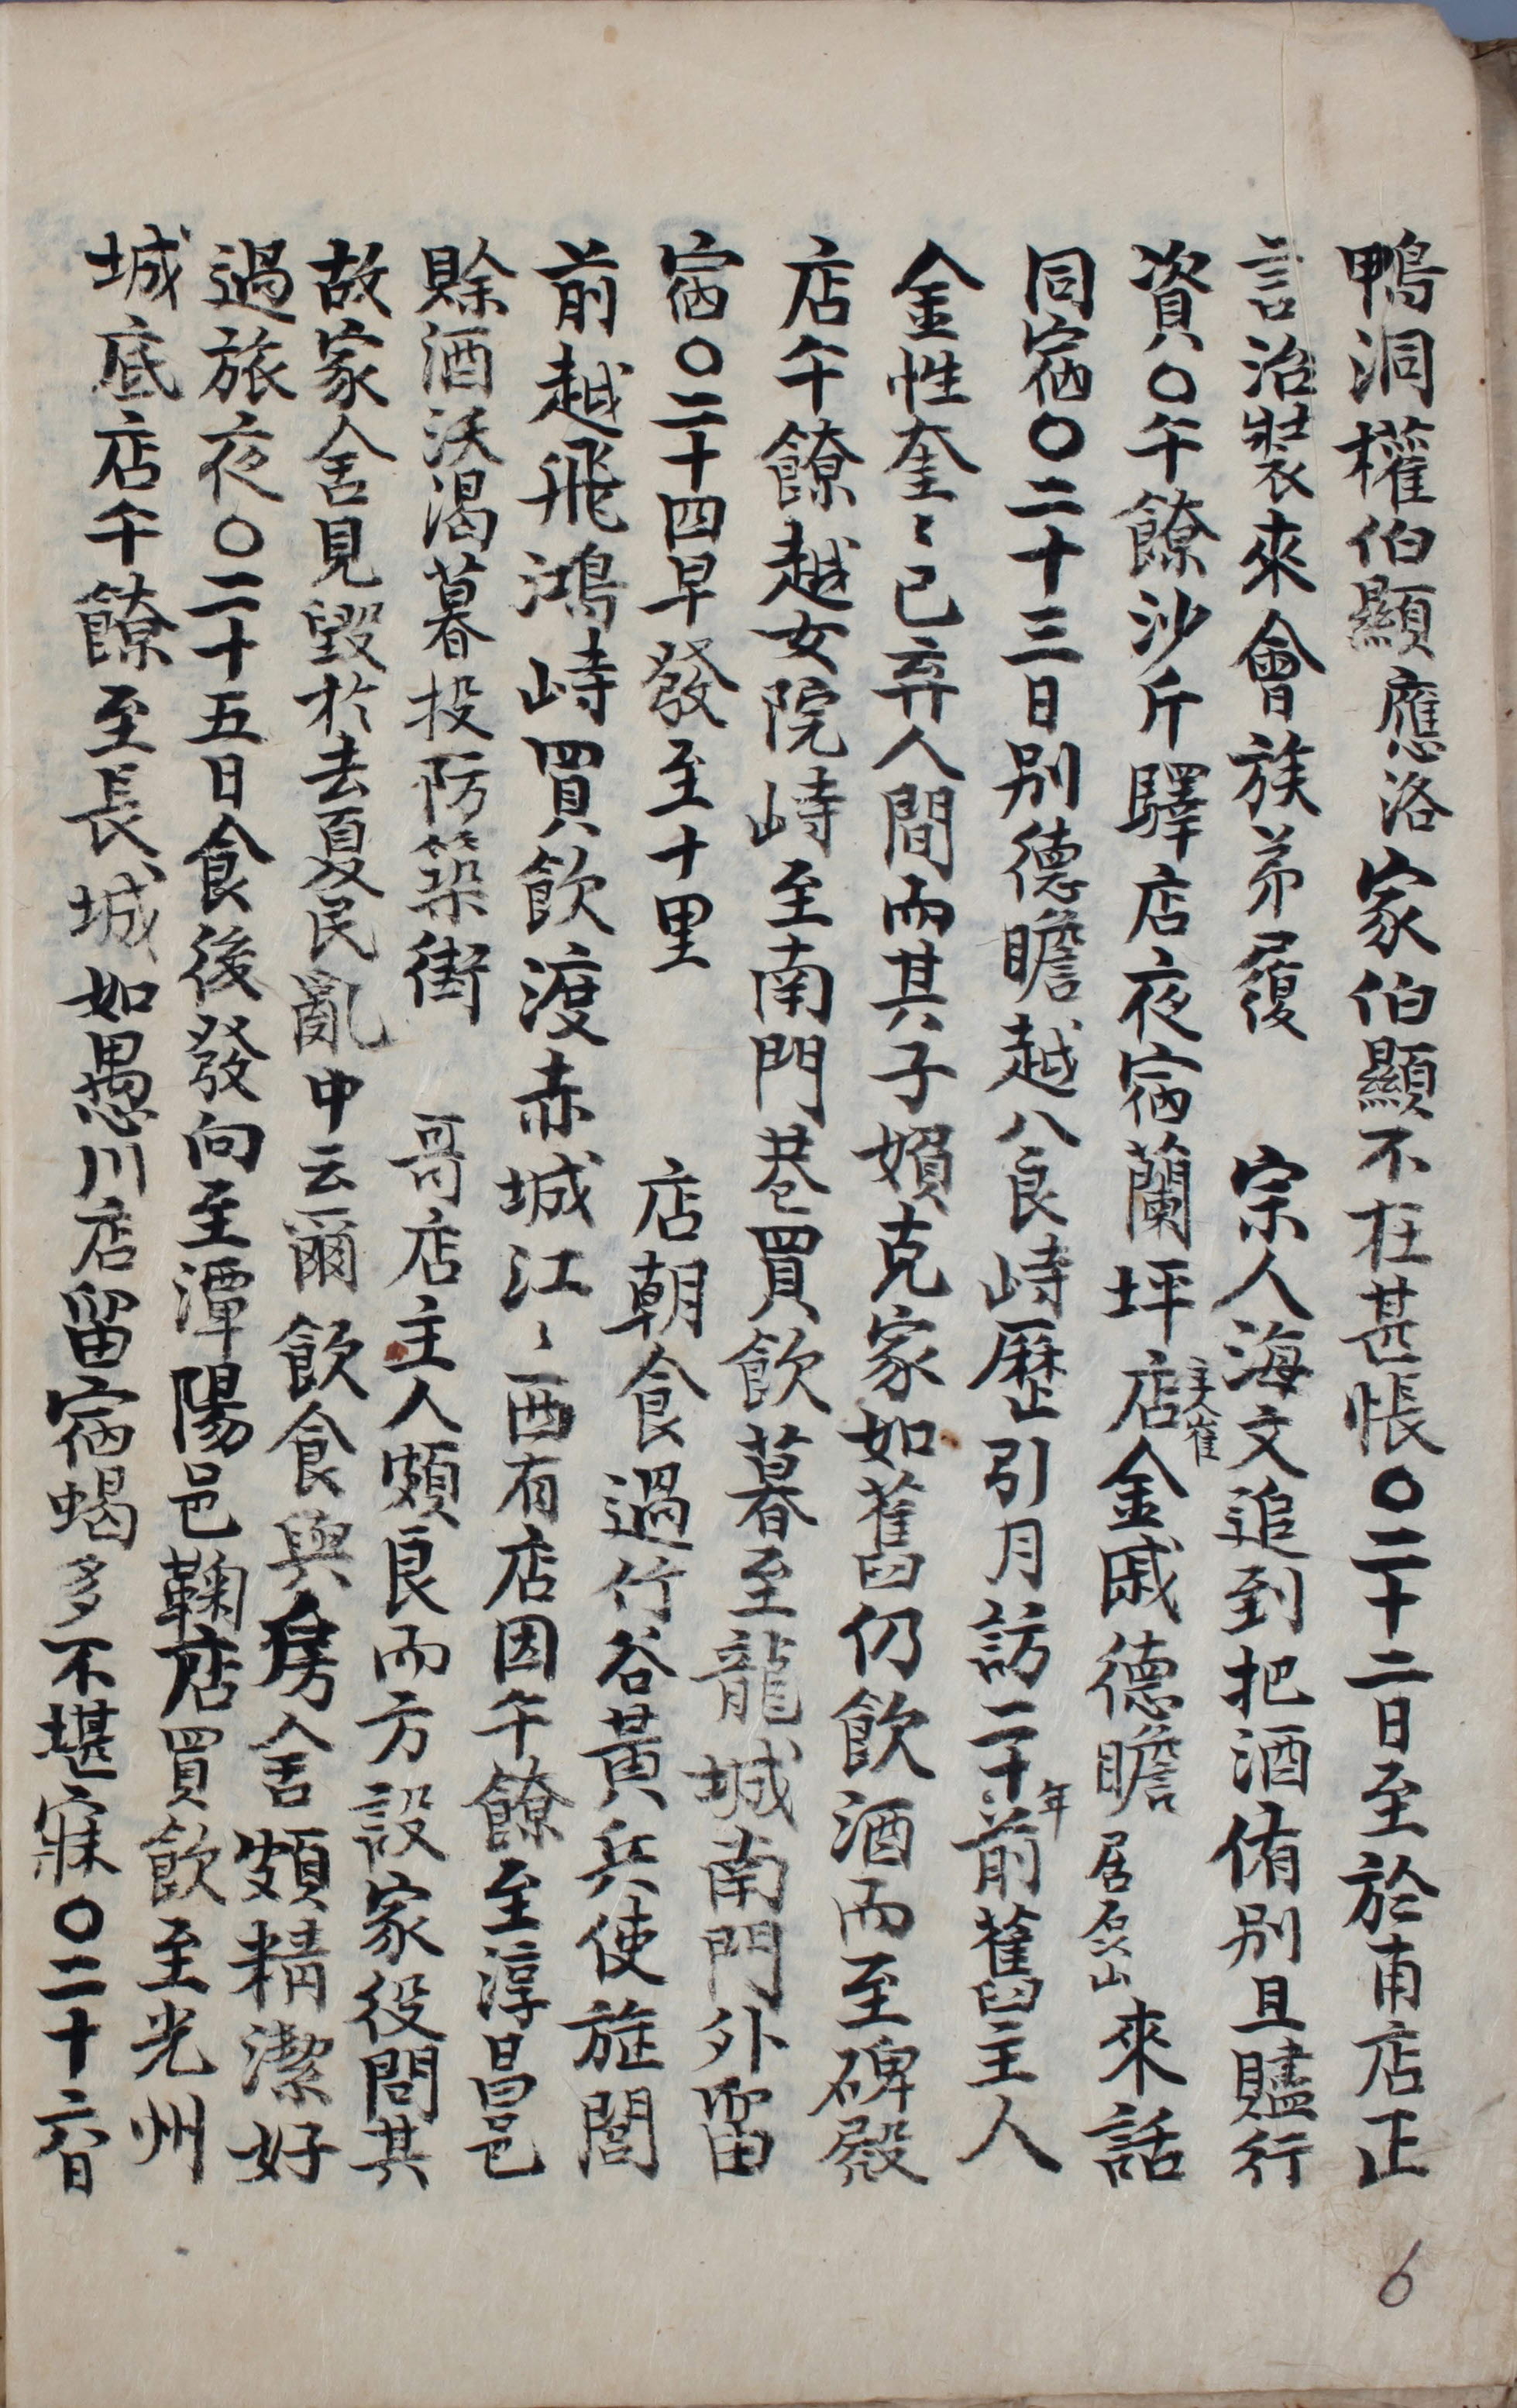 鴨洞權伯顯應洛家伯顯不在甚悵〇二十二日至於甫店正
言治裝來會族弟履 宗人海文追到把酒侑別且贐行
資〇午饒沙斤驛店夜宿蘭坪店主人崔金戚德瞻居磊山來話
同宿〇二十三日別德瞻越八良峙歷引月訪二十年前舊主人
金性奎〻已弃人間而其子嬪克家如舊仍飮酒而至碑殿
店午饒越女院峙至南門巷買飮暮至龍城南門外留
宿〇二十四早發至十里 店朝食過竹谷黃兵使旌閭
前越飛鴻峙買飮渡赤城江〻西有店因午饒至淳昌邑
賖酒沃渴暮投防築街 哥店主人頗良而方設家役問其
故家舍見毀於去夏民亂中云爾飮食與房舍頗精潔好
過旅夜〇二十五日食後發向至潭陽邑鞠店買飮至光州
城底店午饒至長城如愚川店留宿蝎多不堪寐〇二十六日
6